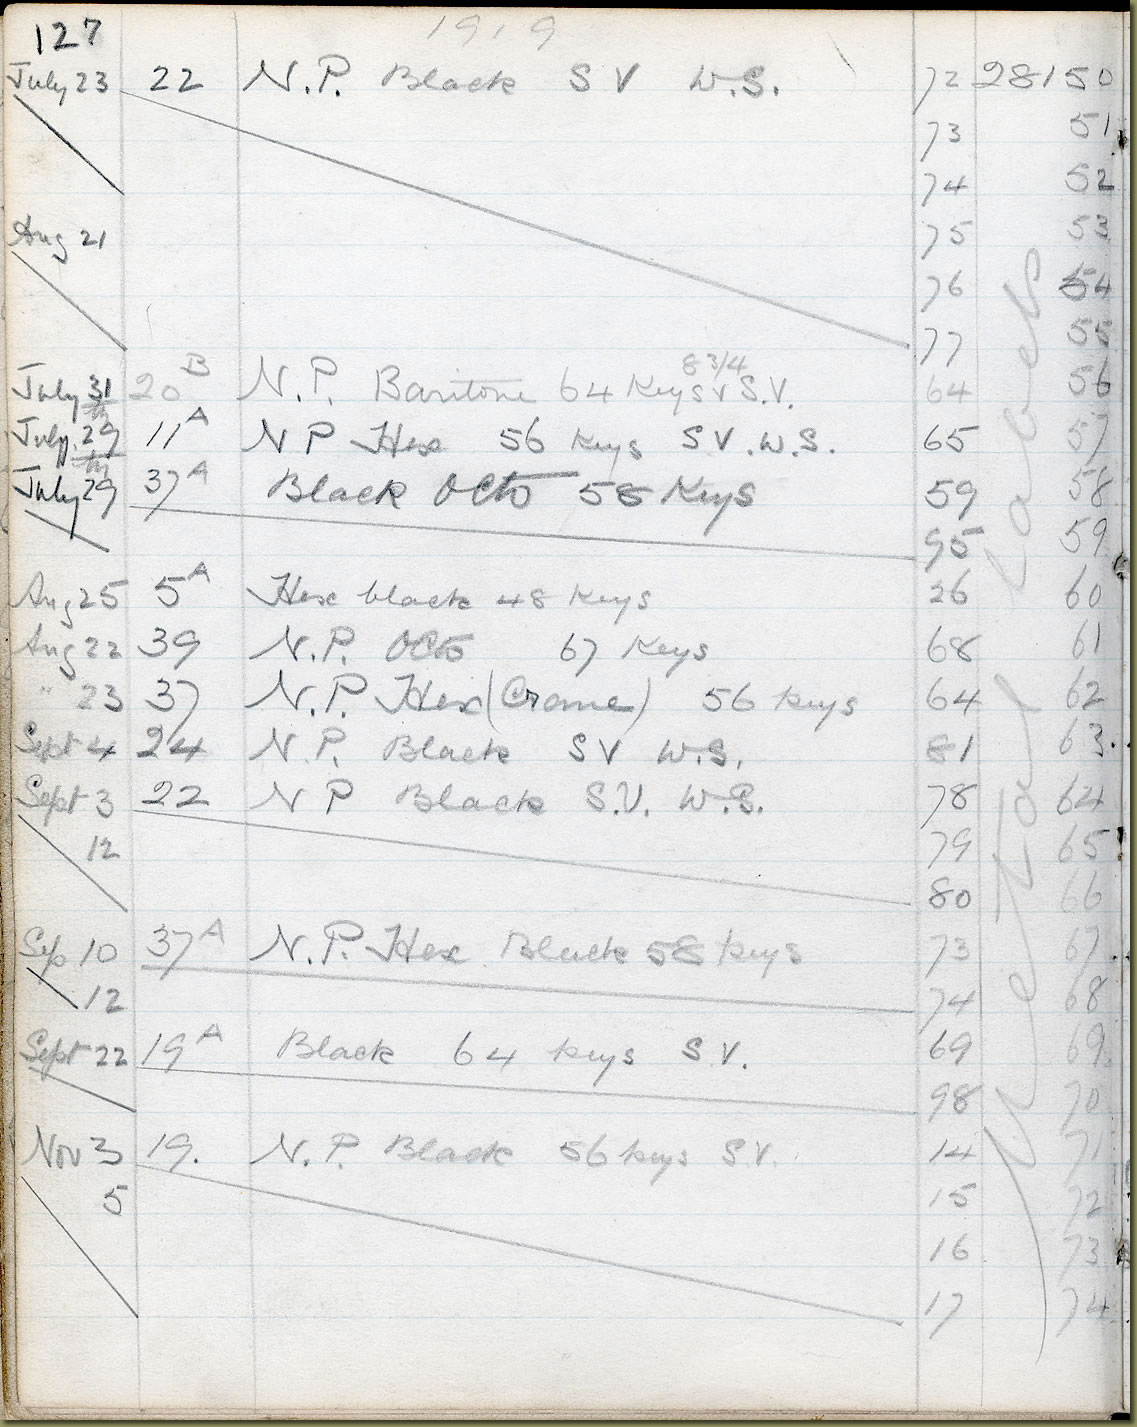 127 1919
July 23 22 N.P. Black S V W.S. 72 28150
73 51
74 52
Aug 21 75 53
76 54
77 55
July 31 20 B N.P. Baritone 64 Keys 8 3/4 S V S.V. 64 56
July 29 th 11 A N P Hex 56 Keys S V. W.S. 65 57
July 29 th 37 A Black Octo 58 Keys 59 58
95 59
Aug 25 5 A Hex black 48 Keys 26 60
Aug 22 39 N.P. Octo 67 Keys 68 61
" 23 37 N.P. Hex (Crane) 56 keys 64 62
Sept 4 24 N.P. Black S V W.S. 81 63.
Sept 3 22 N P Black S.V. W.S. 78 64
12 79 65
80 66
Sep 10 37 A N.P. Hex Black 58 keys 73 67
12 74 68
Sept 22 19 A Black 64 keys S V. 69 69.
98 70
Nov 3 19. N.P. Black 56 keys S.V. 14 71
5 15 72
16 73
17 74
Metal Labels